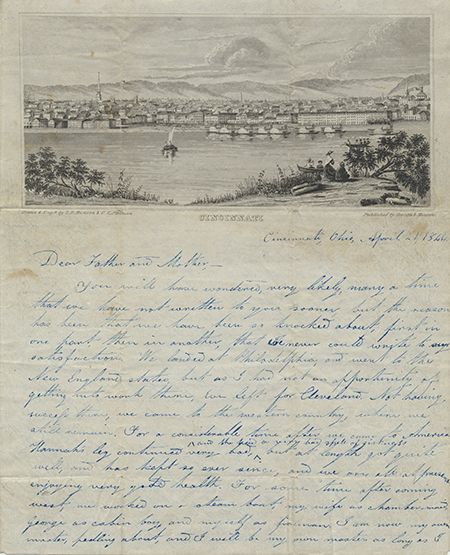 CINCINNATI
Cincinnati, Ohio, April 21 1844
Dear Father and Mother
You will have wondered, very likely, many a time
that we have not written to you sooner but the reason
has been that we have been so knocked about, first in
one part then in another, that we never could wryte to any
satisfaction. We landed at Philadelphia and went to the
New England States, but as I had not an opportunity of
getting into work there, we left for Cleveland. Not having
success there, we came to the western country where we
still remain. For a considerable time after we came to America
Hannahs leg continued very bad, and she was in very bad state of but at length got quite
well, and has kept so ever since, and we are all at present
enjoying very good health. For some time after coming
west, we worked on a steam boat, my wife as chambermaid
george as cabin boy and myself as fireman. I am now my own
master, pedling about, and I will be my own master as long as I